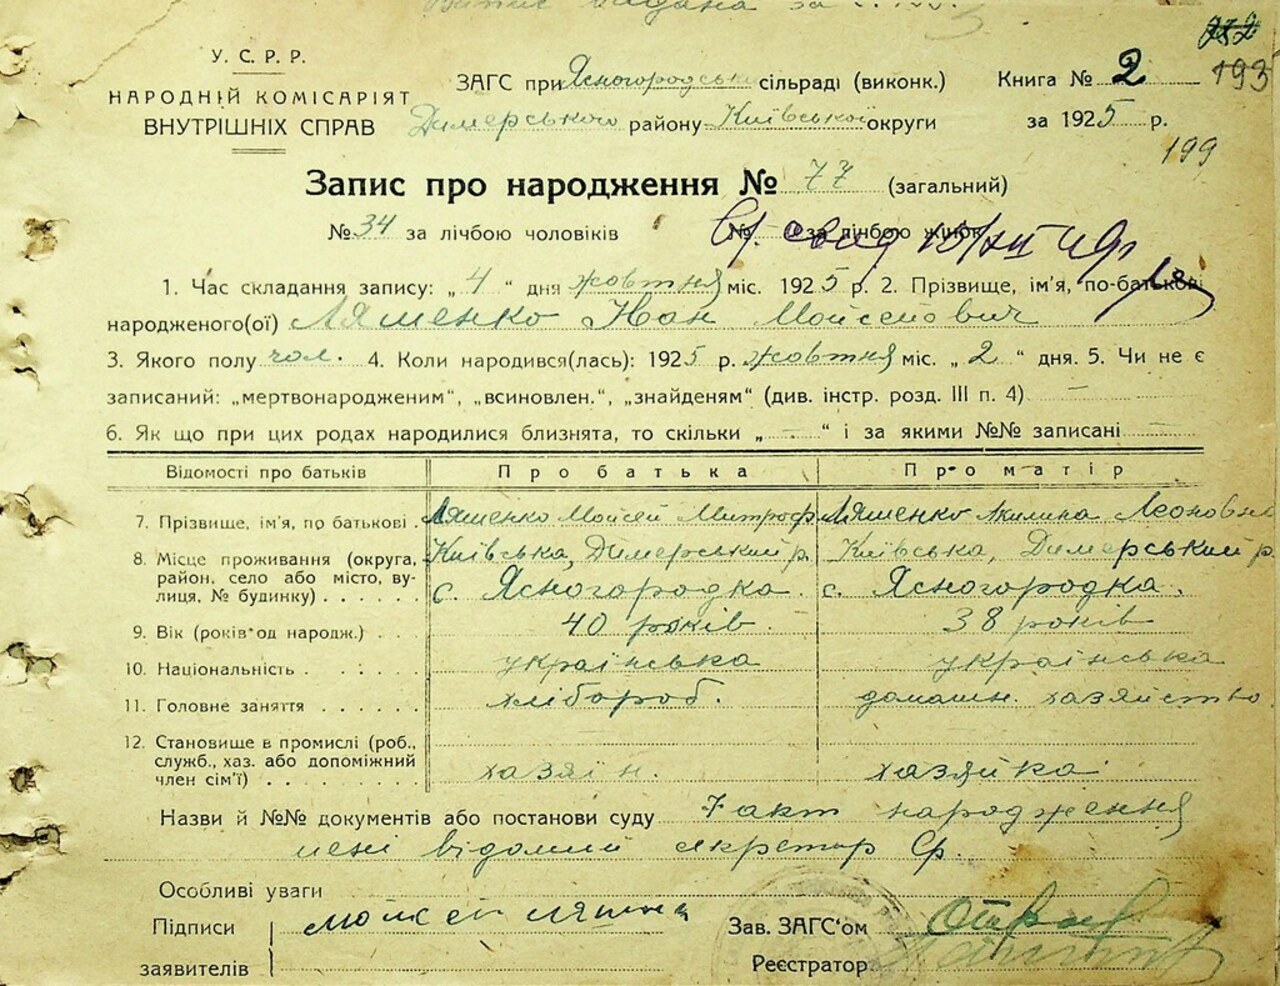 Випис видана за
У. С. Р. Р.
НАРОДНІЙ КОМІСАРІЯТ
ВНУТРІШНІХ СПРАВ
ЗАГС при Ясногородськ сільраді (виконк.)
Димерського району Київської округи
Книга № 2
193
за 1925 р.
199
Запис про народження № 77 (загальний)
№ 34 за лічбою чоловіків № за лічбою жінок
1. Час складання запису: „ 4 “ дня жовтня міс. 1925 р. 2. Прізвище, ім'я, по-батькові
народженого(ої) Ляшенко Іван Мойсейович
3. Якого полу чол. 4. Коли народився(лась): 1925 р. жовтня міс. „ 2 “ дня. 5. Чи не є
записаний: „мертвонародженим“, „всиновлен.“, „знайденям“ (див. інстр. розд. III п. 4) —
6. Як що при цих родах народилися близнята, то скільки „ — “ і за якими №№ записані —
Відомості про батьків Про батька Про матір
7. Прізвище, ім'я, по батькові . Ляшенко Мойсей Митроф Ляшенко Акилина Леоновна
8. Місце проживання (округа, район, село або місто, вулиця, № будинку) . . . . . . Київська, Димерський р. с. Ясногородка. Київська, Димерський р. с. Ясногородка.
9. Вік (років од народж.) . . 40 років. 38 років
10. Національність . . . . . . українська українська
11. Головне заняття . . . . . . хлібороб. домашн. хазяйство
12. Становище в промислі (роб., служб., хаз. або допоміжний член сім'ї) . . . . . . . хазяїн. хазяйка
Назви й №№ документів або постанови суду Факт народження
мені відомий секретар
Особливі уваги
Підписи Мойсей Ляшенк Зав. ЗАГС'ом
заявителів Реєстратор